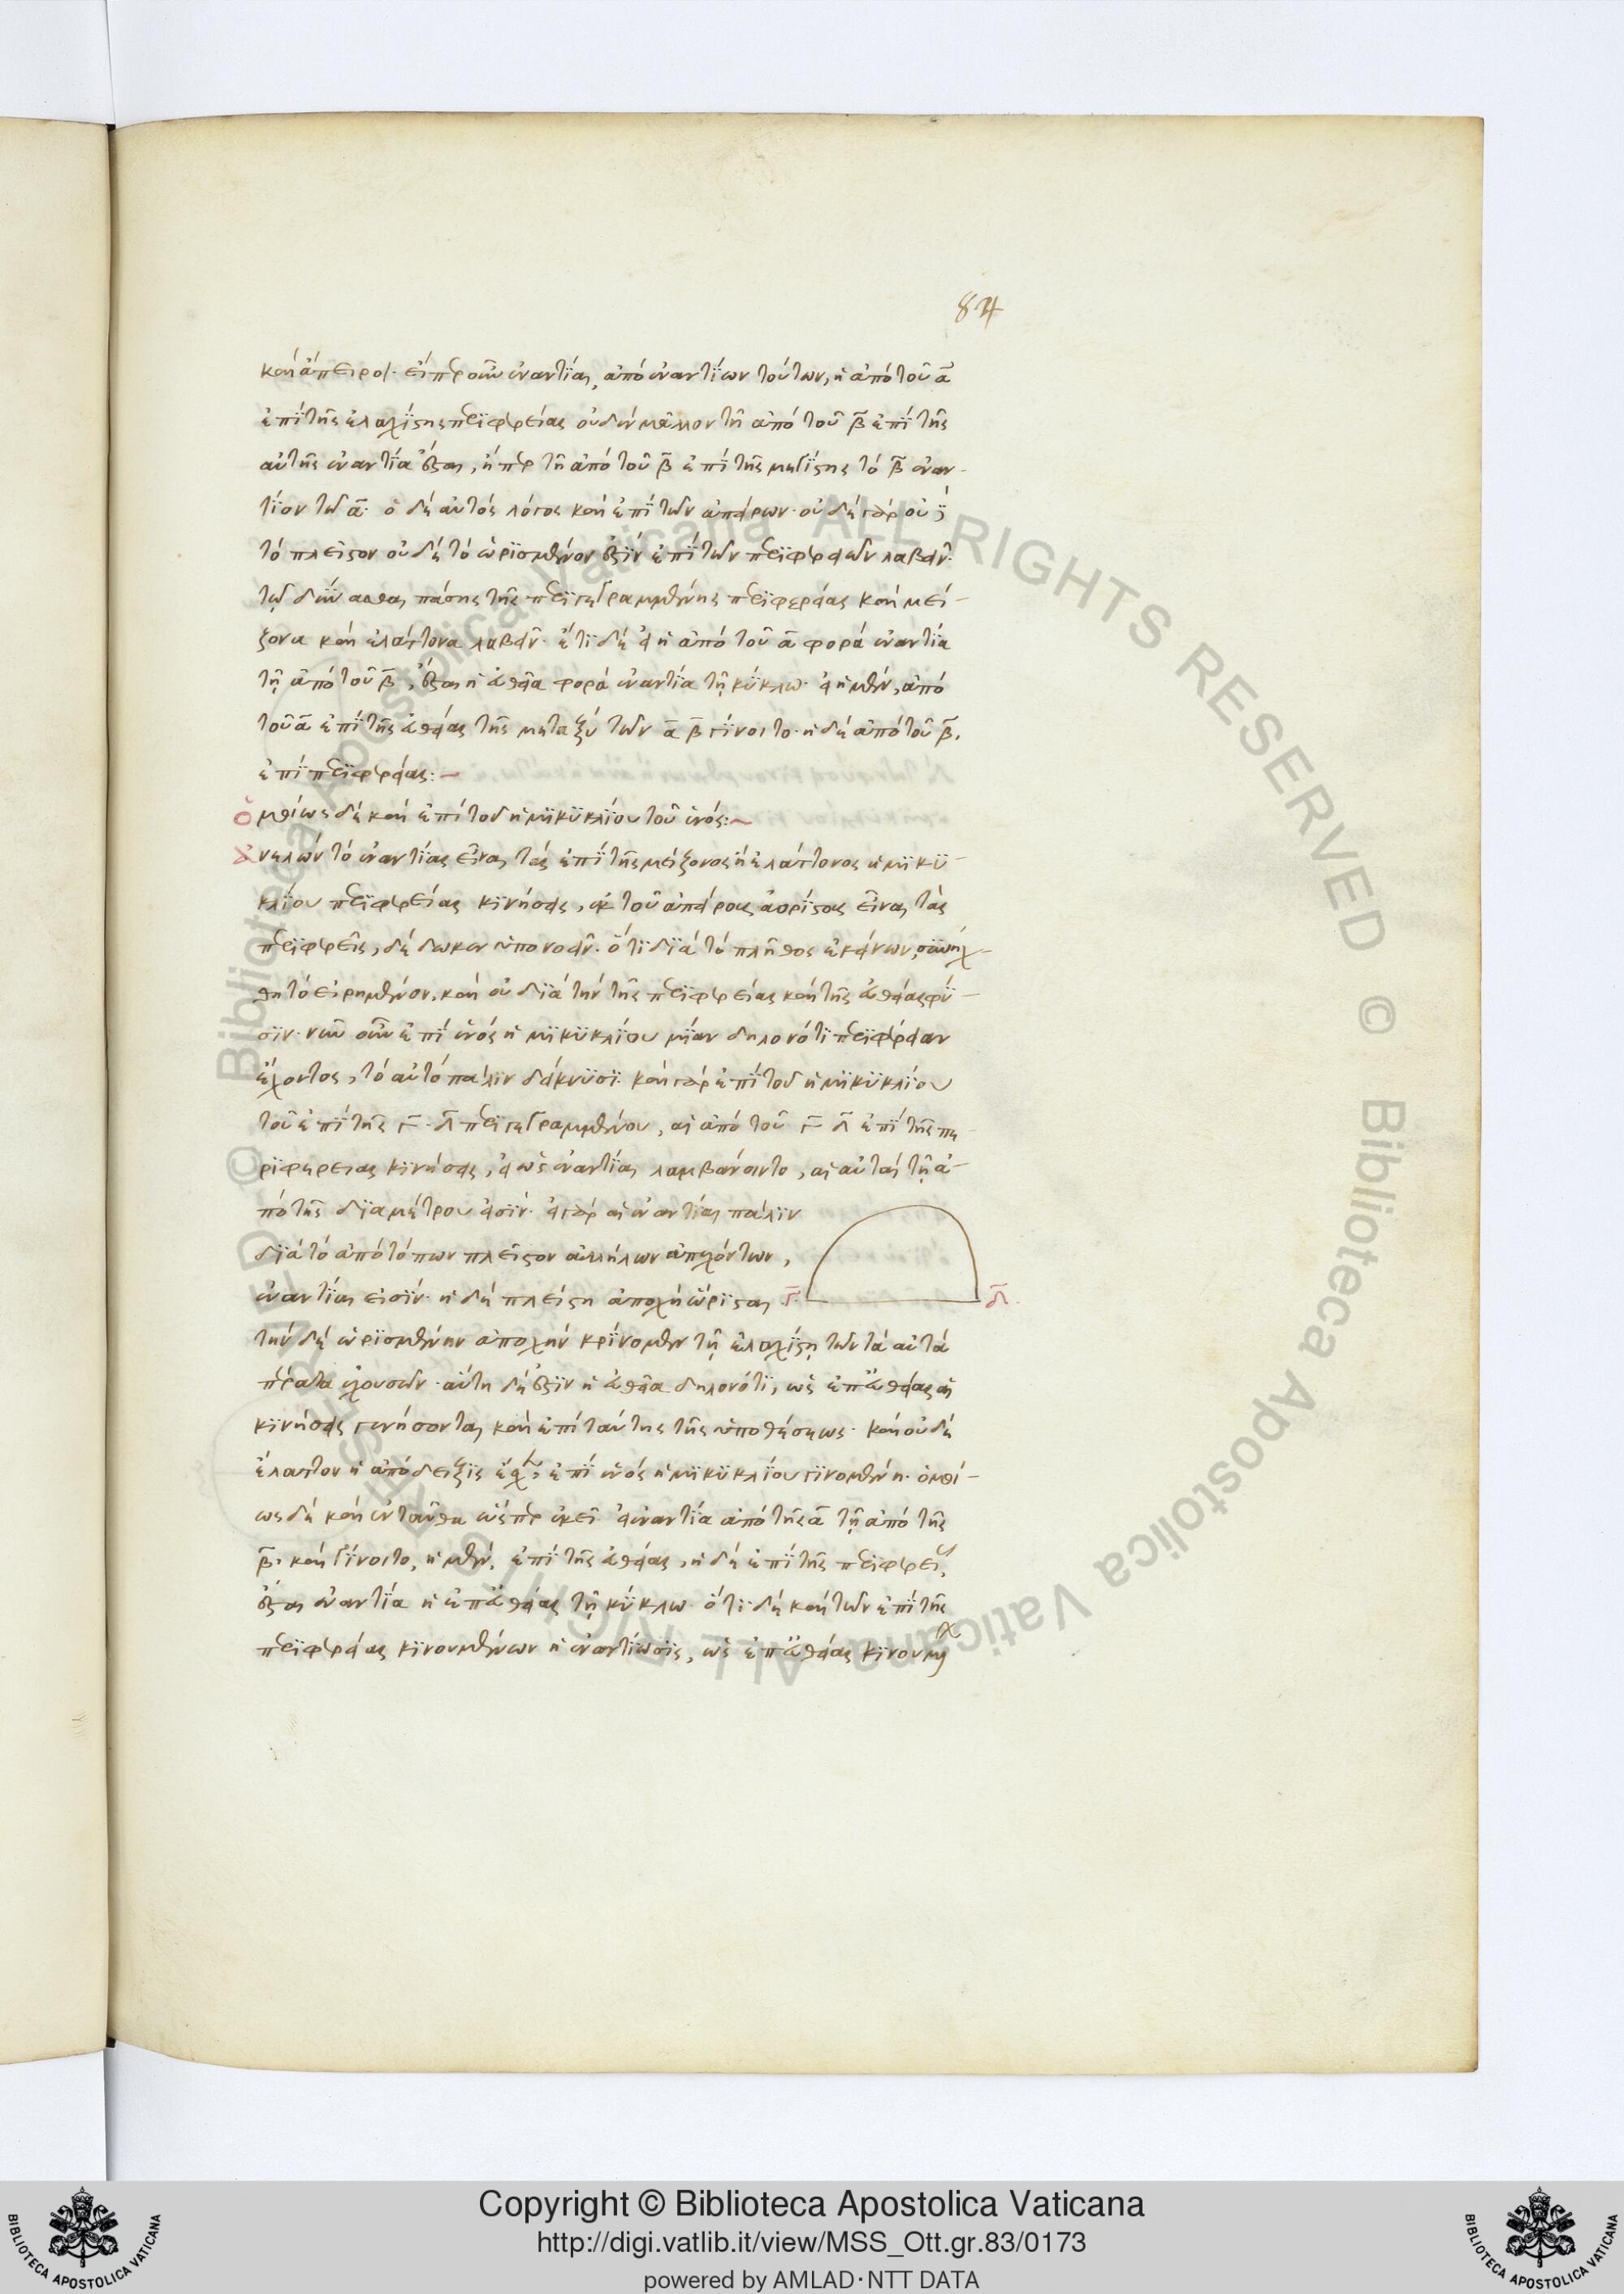 84
καὶ ἄπειροι. εἴπερ οὖν ἐναντίαι, ἀπὸ ἐναντίων τούτων, ἡ ἀπὸ τοῦ α
ἐπὶ τῆς ἐλαχίστης περιφερείας οὐδὲν μᾶλλον τῇ ἀπὸ τοῦ β ἐπὶ τῆς
αὐτῆς ἐναντία ἔσται, ἤπερ τῇ ἀπὸ τοῦ β ἐπὶ τῆς μεγίστης τὸ β ἐναν-
τίον τῷ α. ὁ δὲ αὐτὸς λόγος καὶ ἐπὶ τῶν ἀπείρων. οὐδὲ γὰρ
τὸ πλεῖστον οὐδὲ τὸ ὡρισμένον ἐστὶν ἐπὶ τῶν περιφερειῶν λαβεῖν.
τῷ δύνασθαι πάσης τῆς περιγεγραμμένης περιφερείας καὶ μεί-
ζονα καὶ ἐλάττονα λαβεῖν. ἔτι δὲ εἰ ἡ ἀπὸ τοῦ α φορὰ ἐναντία
τῇ ἀπὸ τοῦ β, ἔσται ἡ εὐθεῖα φορὰ ἐναντία τῇ κύκλω. εἰ ἡ μὲν, ἀπὸ
τοῦ α ἐπὶ τῆς εὐθείας τῆς μεταξὺ τῶν α β γίνοιτο. ἡ δὲ ἀπὸ τοῦ β,
ἐπὶ περιφερείας:~
ὁμοίως δὲ καὶ ἐπὶ τοῦ ἡμικυκλίου τοῦ ἑνός:~
ἀνελὼν τὸ ἐναντίας εἶναι τὰς ἐπὶ τῆς μείζονος ἢ ἐλάττονος ἡμικυ-
κλίου περιφερείας κινήσεις, ἐκ τοῦ ἀπείρους ἀορίστους εἶναι τὰς
περιφερείας, δέδωκεν ὑπονοεῖν. ὅτι διὰ τὸ πλῆθος ἐκείνων, συνήχ-
θη τὸ εἰρημένον. καὶ οὐ διὰ τὴν τῆς περιφερείας καὶ τῆς εὐθείας φύ-
σιν. νῦν οὖν ἐπὶ ἑνὸς ἡμικυκλίου μίαν δηλονότι περιφέρειαν
ἔχοντος, τὸ αὐτὸ πάλιν δείκνυσι. καὶ γὰρ ἐπὶ τοῦ ἡμικυκλίου
τοῦ ἐπὶ τῆς γ. δ περιγεγραμμένου, αἱ ἀπὸ τοῦ γ δ ἐπὶ τῆς πε-
ριφερειας κινήσεις, εἰ ὡς ἐναντίαι λαμβάνοιντο, αἱ αὐταὶ τῇ ἀ-
πὸ τῆς διαμέτρου εἰσίν. εἰ γὰρ αἱ ἐναντίαι πάλιν
διὰ τὸ ἀπὸ τόπων πλεῖστον ἀλλήλων ἀπεχόντων,
ἐναντίαι εἰσίν. ἡ δὲ πλείστη ἀποχὴ ὥρισται γ. δ.
τὴν δὲ ὡρισμένην ἀποχὴν κρίνομεν τῇ ἐλαχίστῃ τῶν τὰ αὐτὰ
πέρατα ἐχουσῶν. αὕτη δέ ἐστιν ἡ εὐθεῖα δηλονότι, ὡς ἐπ' εὐθείας αἱ
κινήσεις γενήσονται καὶ ἐπὶ ταύτης τῆς ὑποθέσεως. καὶ οὐδὲ
ἔλαττον ἡ ἀπόδειξις ἐπὶ ἑνὸς ἡμικυκλίου γινομένη. ὁμοί-
ως δὲ καὶ ἐνταῦθα ὥσπερ ἐκεῖ εἰ ἐναντία ἀπὸ τῆς α τῇ ἀπὸ τῆς
β. καὶ γίνοιτο, ἡ μὲν, ἐπὶ τῆς εὐθείας, ἡ δὲ ἐπὶ τῆς περιφερείας,
ἔσται ἐναντία ἡ ἐπ' εὐθείας τῇ κύκλω. ὅτι δὲ καὶ τῶν ἐπὶ τῆς
περιφερείας κινουμένων ἡ ἐναντίωσις, ὡς ἐπ' εὐθείας κινουμέ
Copyright © Biblioteca Apostolica Vaticana
http://digi.vatlib.it/view/MSS_Ott.gr.83/0173
powered by AMLAD·NTT DATA
BIBLIOTECA APOSTOLICA VATICANA
BIBLIOTECA APOSTOLICA VATICANA
© Biblioteca Apostolica Vaticana ALL RIGHTS RESERVED © Biblioteca Apostolica Vaticana ALL RIGHTS RESERVED